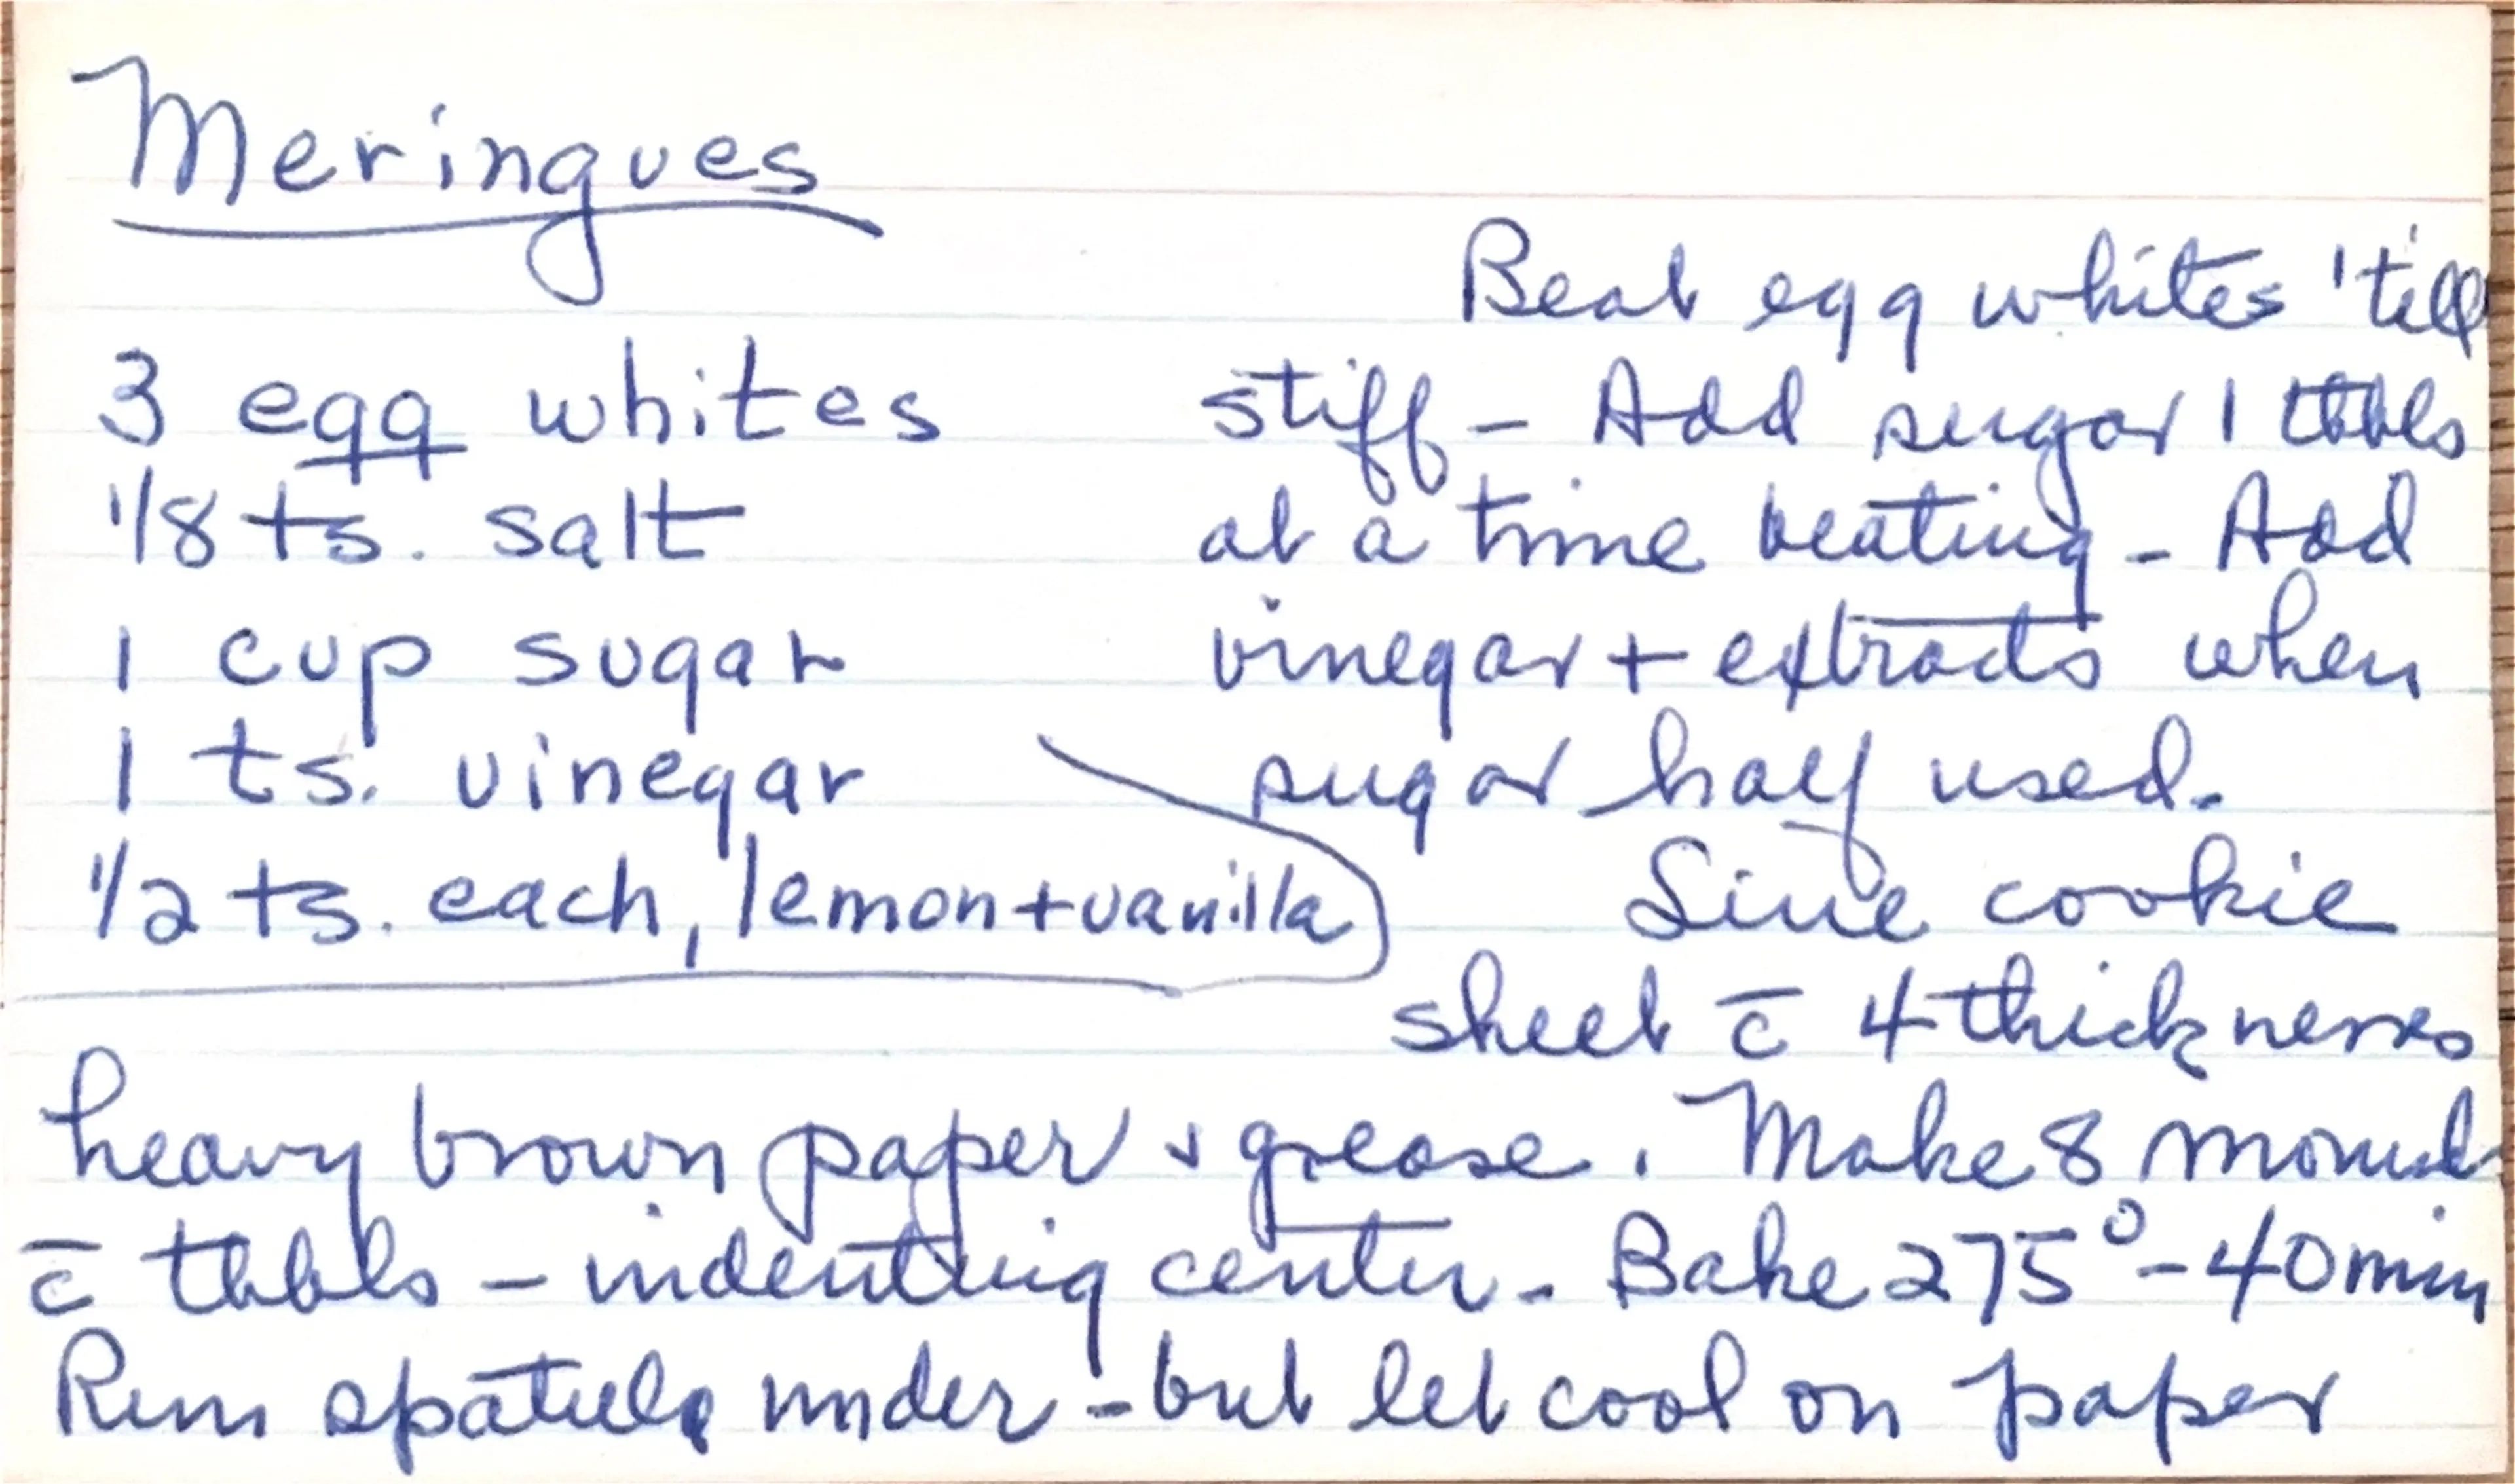 Meringues
3 egg whites
1/8 ts. salt
1 cup sugar
1 ts. vinegar
1/2 ts. each, lemon + vanilla
Beat egg whites 'till
stiff - Add sugar 1 tbbls
at a time beating - Add
vinegar + extracts when
sugar half used.
Line cookie
sheet c̄ 4 thicknesses
heavy brown paper & grease. Make 8 mounds
c̄ tbbls - indenting center - Bake 275° - 40 min
Run spatula under - but let cool on paper